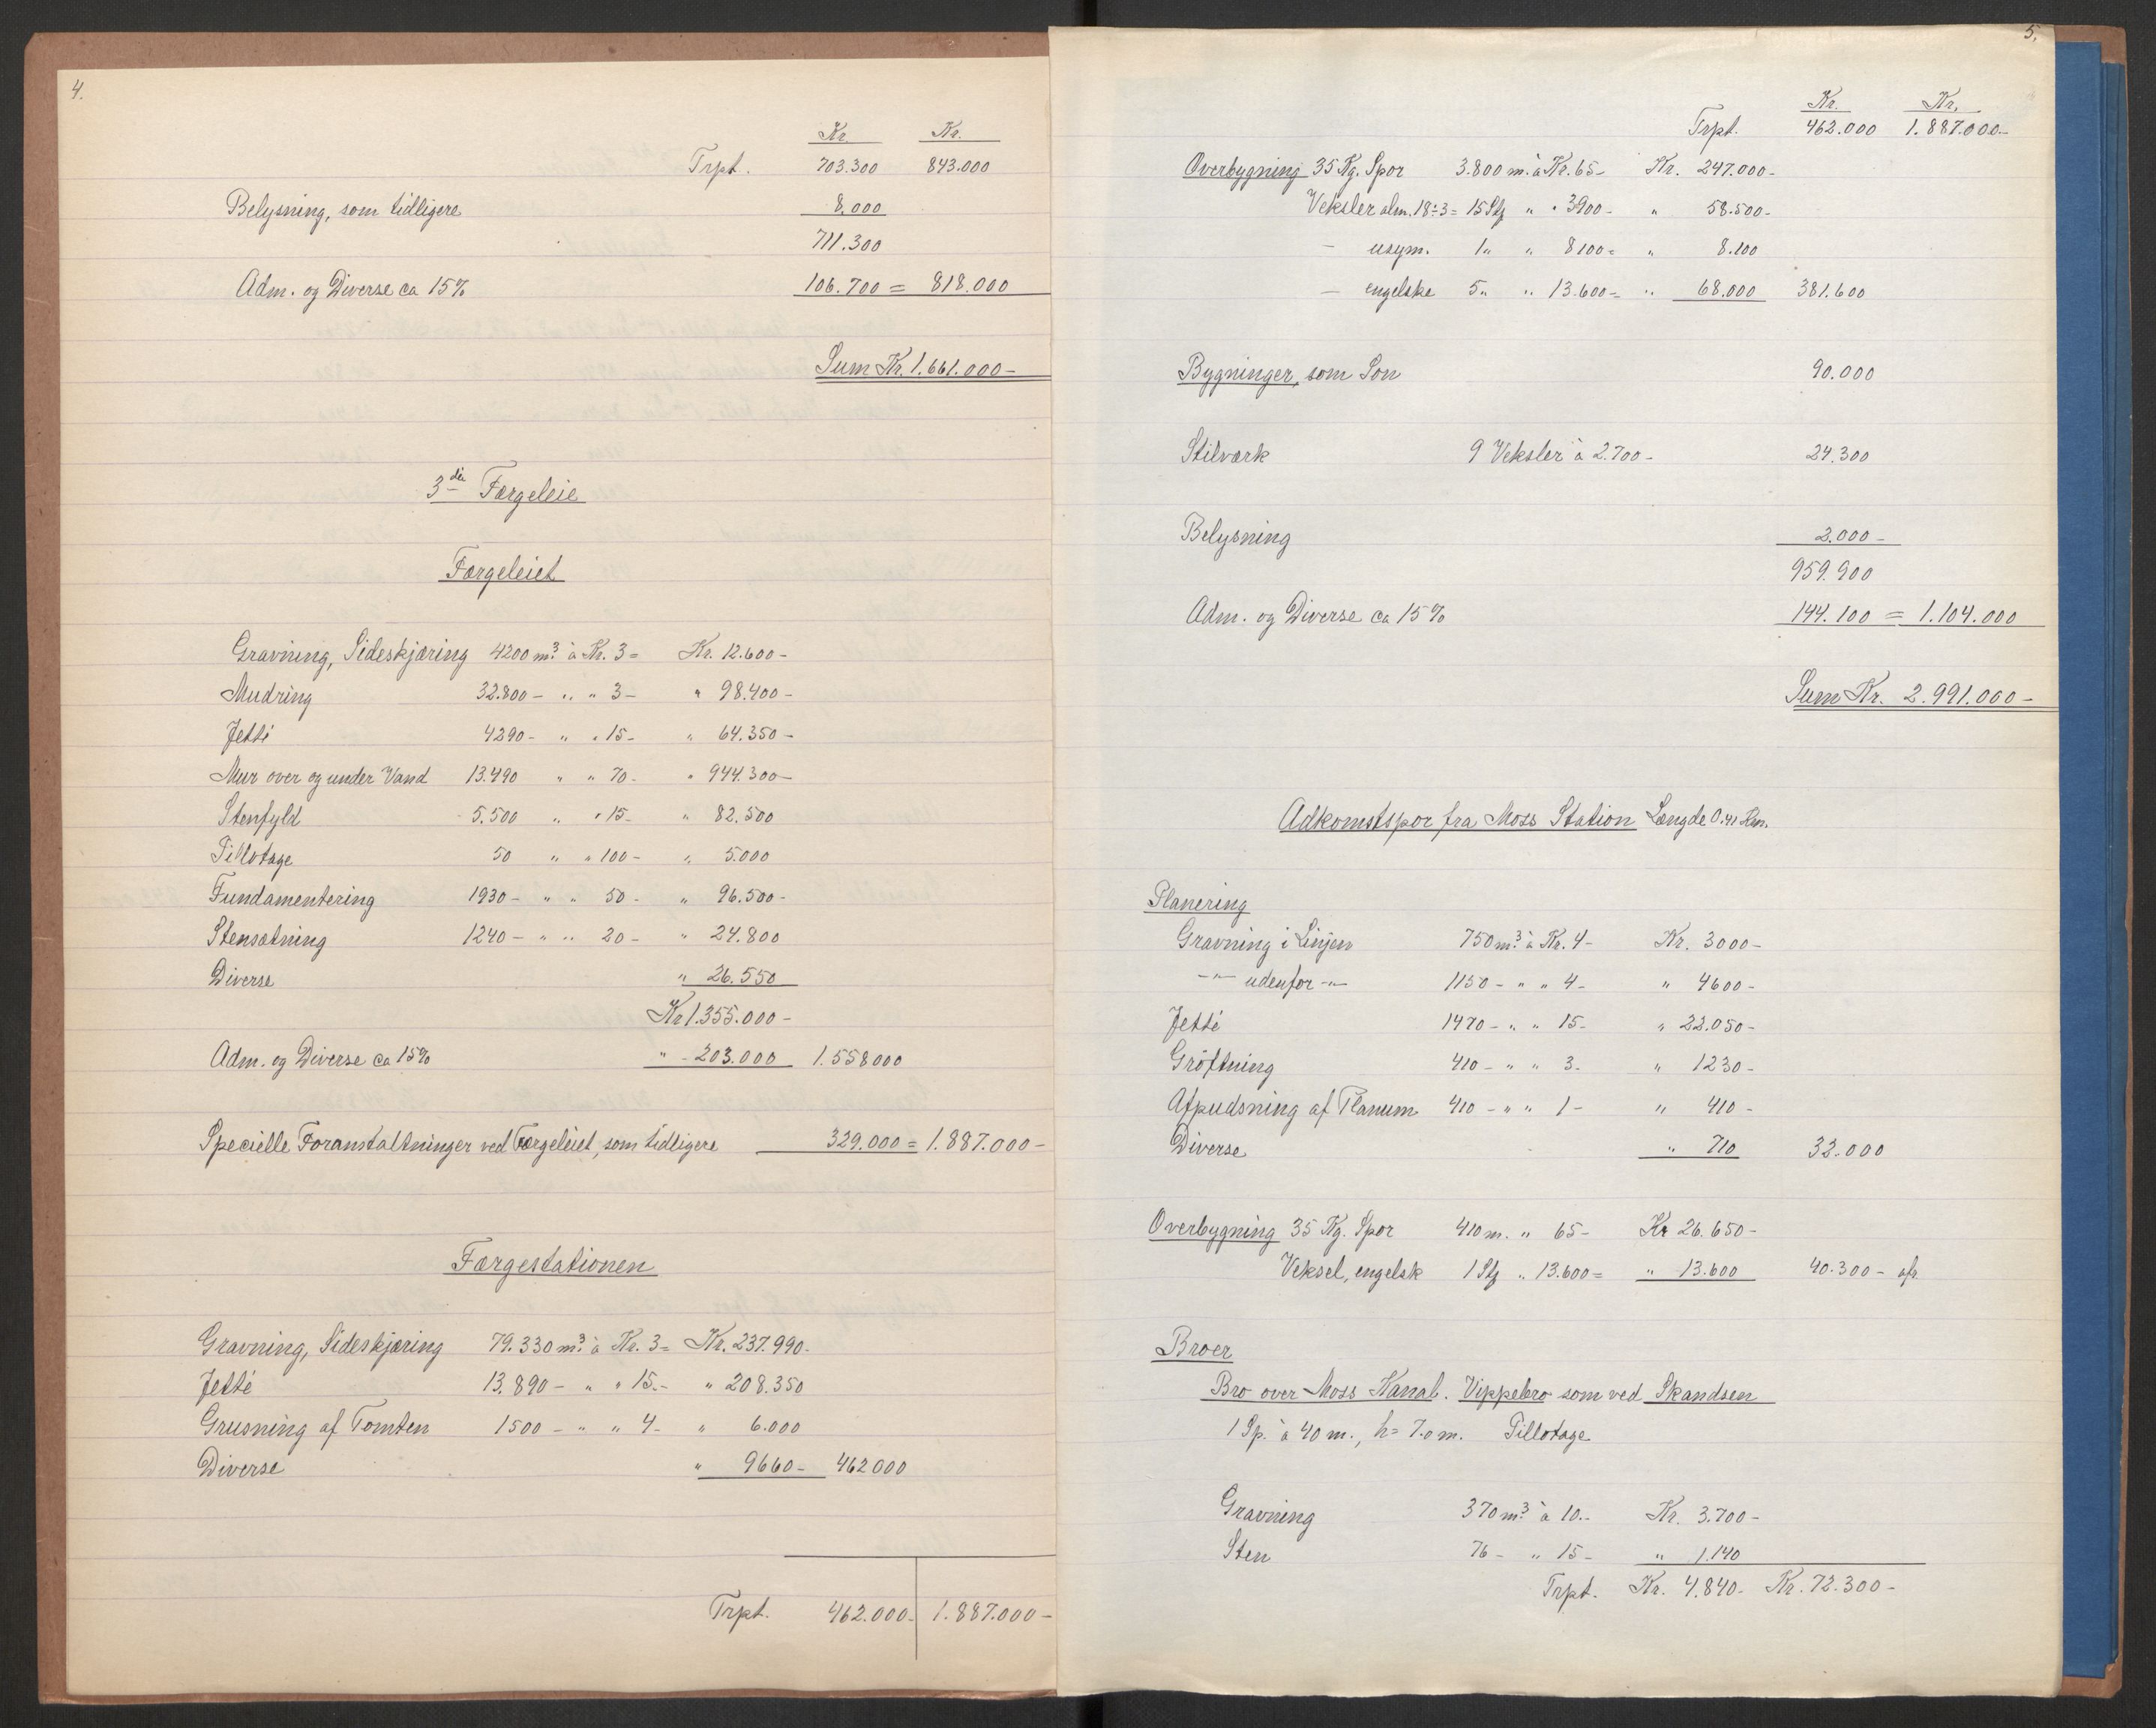 4.
Kr. Kr.
Trpt. 703.300 843.000
Belysning, som tidligere 8.000
711.300
Adm. og Diverse ca 15% 106.700 = 818.000
Sum Kr. 1.661.000-
3die Færgeleie
Færgeleiet
Gravning, Sideskjæring 4200 m³ à Kr. 3= Kr. 12.600-
Mudring 32.800- " " 3- " 98.400-
Jetté 4290- " " 15- " 64.350-
Mur over og under Vand 13.490 " " 70- " 944.300-
Stenfyld 5.500 " " 15- " 82.500
Pillotage 50 " " 100- " 5.000
Fundamentering 1930- " " 50- " 96.500-
Stensætning 1240- " " 20- " 24.800
Diverse " 26.550
Kr 1.355.000-
Adm. og Diverse ca 15% " 203.000 1.558000
Specielle Foranstaltninger ved Færgeleiet, som tidligere 329.000 = 1.887.000-
Færgestationen
Gravning, Sideskjæring 79.330 m³ à Kr. 3= Kr. 237.990-
Jetté 13.890- " " 15.- " 208.350
Grusning af Tomten 1500- " " 4- " 6.000
Diverse " 9660- 462000
Trpt. 462.000- 1.887.000-
5.
Kr. Kr.
Trpt. 462.000 1.887.000-
Overbygning 35 Kg. Spor 3.800 m. à Kr. 65- Kr. 247.000-
Veksler alm. 18÷3= 15 Stk " " 3900- " 58.500-
- usym. 1 " " 8100= " 8.100
- engelske 5 " " 13.600= " 68.000 381.600
Bygninger, som Son 90.000
Stilværk 9 Veksler à 2.700- 24.300
Belysning 2.000-
959.900
Adm. og Diverse ca 15% 144.100 = 1.104.000
Sum Kr. 2.991.000-
Adkomstspor fra Moss Station Længde 0.41 Km.
Planering
Gravning i Linjen 750 m³ à Kr. 4- Kr. 3000-
-"- udenfor -"- 1150- " " 4- " 4600-
Jetté 1470- " " 15- " 22.050-
Gröftning 410- " " 3- " 1230-
Afpudsning af Planum 410- " " 1- " 410-
Diverse " 710 32.000
Overbygning 35 Kg. Spor 410 m. " 65- Kr 26.650-
Veksel, engelsk 1 Stk " 13.600= " 13.600 40.300- afr.
Broer
Bro over Moss Kanal. Vippebro som ved Skandsen
1 Sp. à 40 m., h= 7.0 m. Pillotage
Gravning 370 m³ à 10.- Kr. 3.700-
Sten 76- " 15- " 1.140
Trpt. Kr. 4.840- Kr. 72.300-